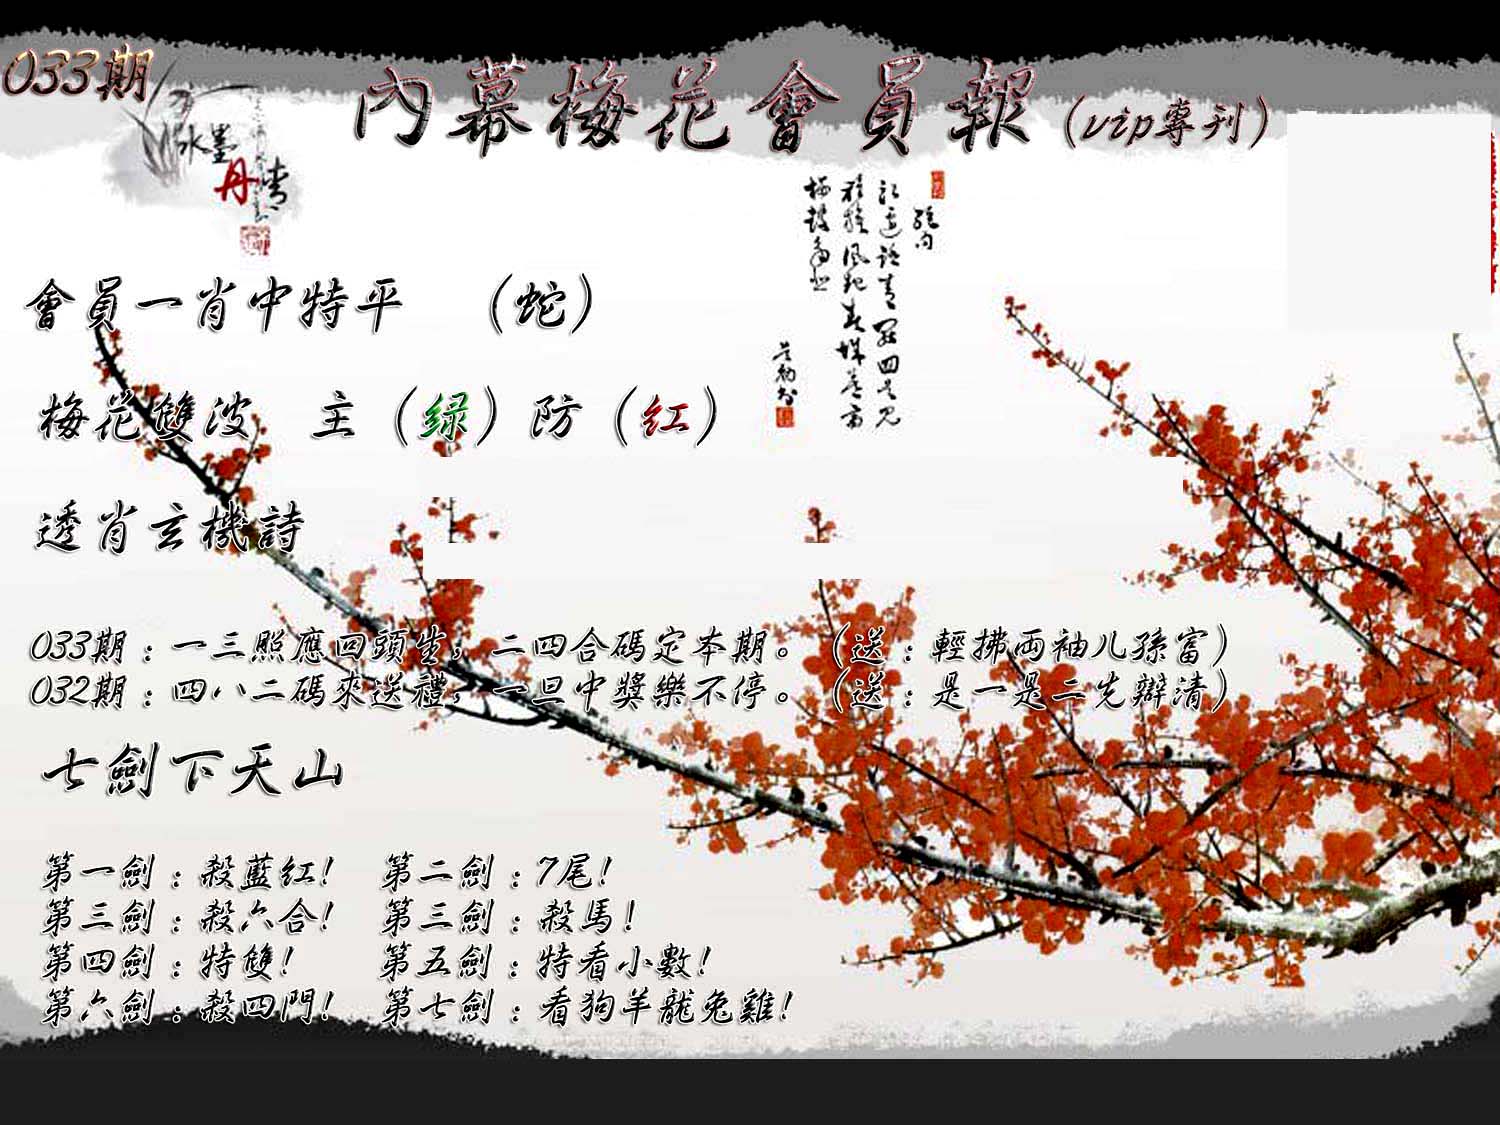 033期
內幕梅花會員報（vip專刊）
水墨
丹青
會員一肖中特平 （蛇）
梅花雙波 主（绿）防（红）
透肖玄機詩
033期：一三照應回頭生；二四合碼定本期。（送：輕拂両袖儿孫富）
032期：四八二碼來送禮，一旦中獎樂不停。（送：是一是二先辯清）
七劍下天山
第一劍：殺藍红！ 第二劍：7尾！
第三劍：殺六合！ 第三劍：殺馬！
第四劍：特雙！ 第五劍：特看小數！
第六劍：殺四門！ 第七劍：看狗羊龍兔雞！